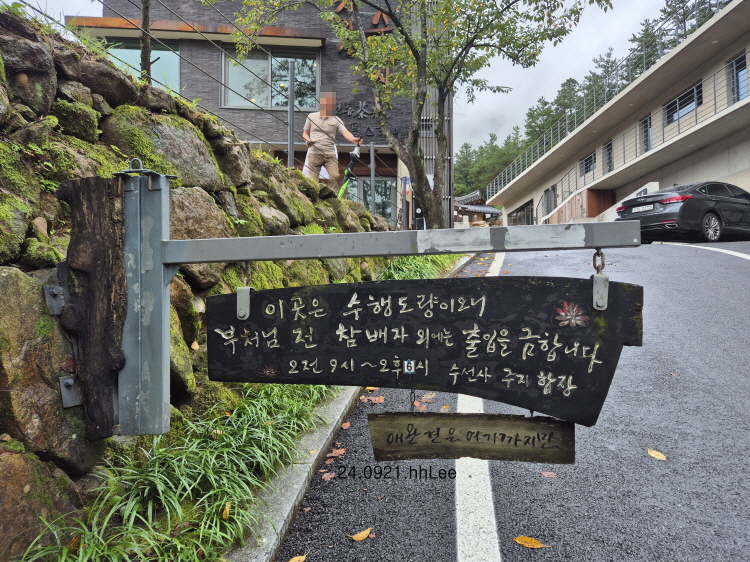 이곳은 수행도량이오니
부처님 전 참배자 외에는 출입을 금합니다.
오전 9시~오후 6시 수선사 주지 합장
애완견은 여기까지만
24.0921.hhLee